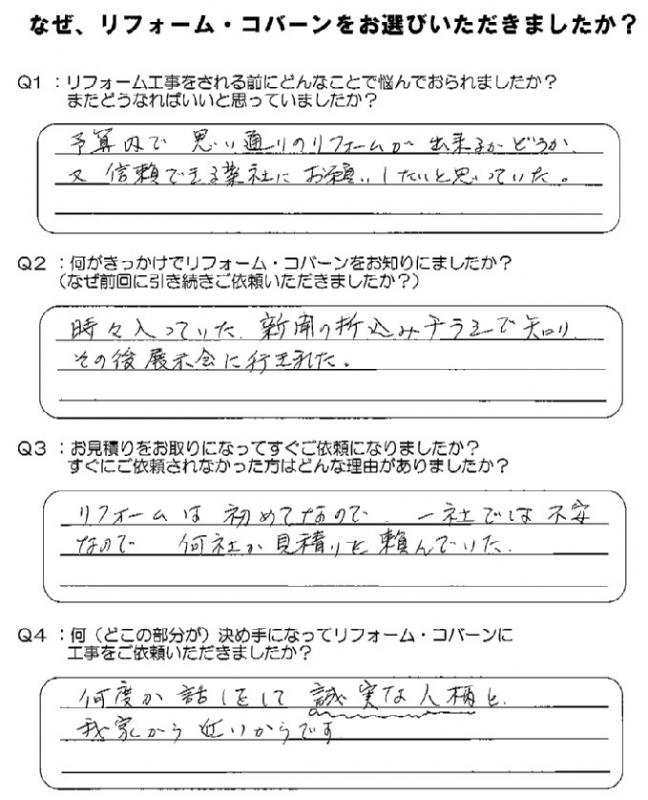 なぜ、リフォーム・コバーンをお選びいただきましたか？
Q1：リフォーム工事をされる前にどんなことで悩んでおられましたか？
またどうなればいいと思っていましたか？
予算内で 思い通りのリフォームが 出来るかどうか、
又 信頼できる業社に お願いしたいと思っていた。
Q2：何がきっかけでリフォーム・コバーンをお知りにましたか？
（なぜ前回に引き続きご依頼いただきましたか？）
時々入っていた 新聞の折込みチラシで知り、
その後展示会に行きました。
Q3：お見積りをお取りになってすぐご依頼になりましたか？
すぐにご依頼されなかった方はどんな理由がありましたか？
リフォームは 初めてなので、一社では 不安
なので 何社か見積りを頼んでいた。
Q4：何（どこの部分が）決め手になってリフォーム・コバーンに
工事をご依頼いただきましたか？
何度か 話しをして 誠実な人柄と、
我家から 近いからです